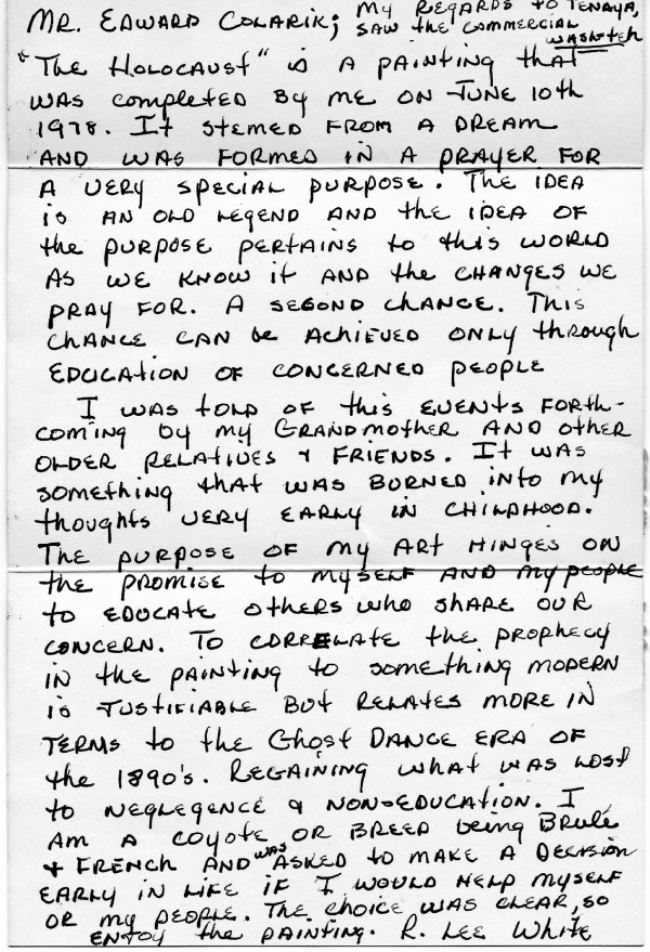 MR. EDWARD COLARIK; MY REGARDS TO TENAYA,
SAW the COMMERCIAL
WASHTEH
"The HOLOCAUST" is A PAINTING that
WAS completed BY ME ON JUNE 10th
1978. It STEMED FROM A DREAM
AND WAS FORMED IN A PRAYER FOR
A VERY SPECIAL PURPOSE. The IDEA
is AN OLD LEGEND AND the IDEA OF
the PURPOSE PERTAINS to this WORLD
AS WE KNOW it AND the CHANGES WE
PRAY FOR. A SECOND CHANCE. This
CHANCE CAN be ACHIEVED ONLY through
EDUCATION OF CONCERNED PEOPLE
I WAS told OF this EVENTS FORTH-
COMING by my GRANDMOTHER AND other
OLDER RELATIVES & FRIENDS. It WAS
SOMETHING that WAS BURNED into my
thoughts VERY EARLY IN CHILDHOOD.
The PURPOSE OF my ART HINGES ON
the PROMISE to MYSELF AND my PEOPLE
to EDUCATE others who SHARE OUR
CONCERN. To CORRELATE the PROPHECY
IN the PAINTING to SOMETHING MODERN
is JUSTIFIABLE But RELATES MORE IN
TERMS to the Ghost DANCE ERA OF
the 1890's. REGAINING what WAS LOST
to NEGLEGENCE & NON-EDUCATION. I
AM A COYOTE OR BREED being BRULÉ
& FRENCH AND WAS ASKED to MAKE A DECISION
EARLY IN LIFE IF I WOULD HELP MYSELF
OR MY PEOPLE. The choice WAS CLEAR, SO
ENJOY the PAINTING. R. LEE WHITE